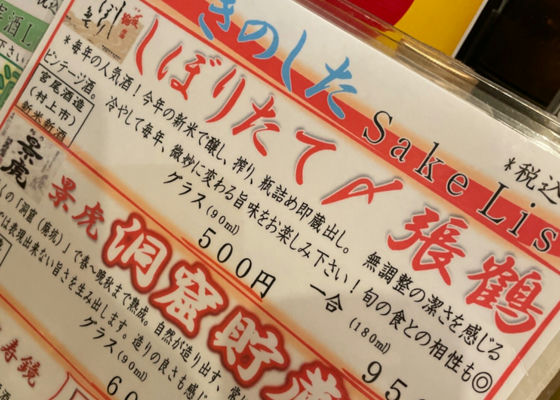 きのした
Sake Lis
*税込
しぼりたて〆張鶴
宮尾酒造
(村上市)
新米新酒
*毎年の人気酒!今年の新米で醸し、搾り、瓶詰め即蔵出し。
無調整の潔さを感じる
ビンテージ酒。
冷やして毎年、微妙に変わる旨味をお楽しみ下さい!旬の食との相性も◎
グラス(90ml)
500円
一合(180ml)
95
景虎
景虎 洞窟貯蔵
の「洞窟
で春〜晩秋まで熟成。自然が造り出す、
は表現出来ない旨さを生み出します。造りの良さも感じ
グラス(90ml)
60
寿鏡